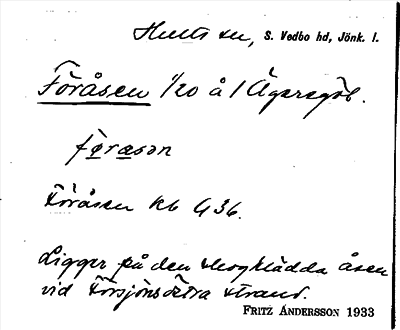 Hults sn, S. Vedbo hd, Jönk. l.
Föråsen 1/20 å 1 Ägersgöl.
føråsən
Föråsen kb G36.
Ligger på den skogklädda åsen
vid Försjöns östra strand.
FRITZ ANDERSSON 1933